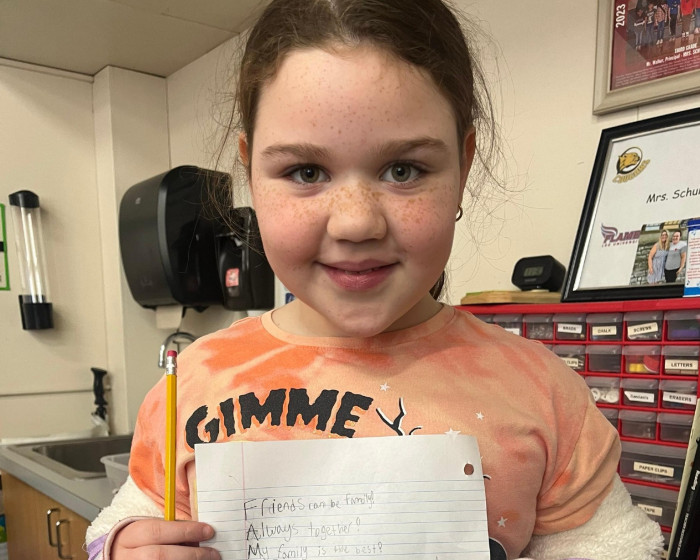 2023
THIRD GRADE
Mr. Walker, Principal - MRS. SCH
Mrs. Schu
FLAME
GIMME
CHALK
SCREWS
LETTERS
ERASERS
PAPER CLIPS
TAPE
Friends can be family!
Always together!
My family is the best!